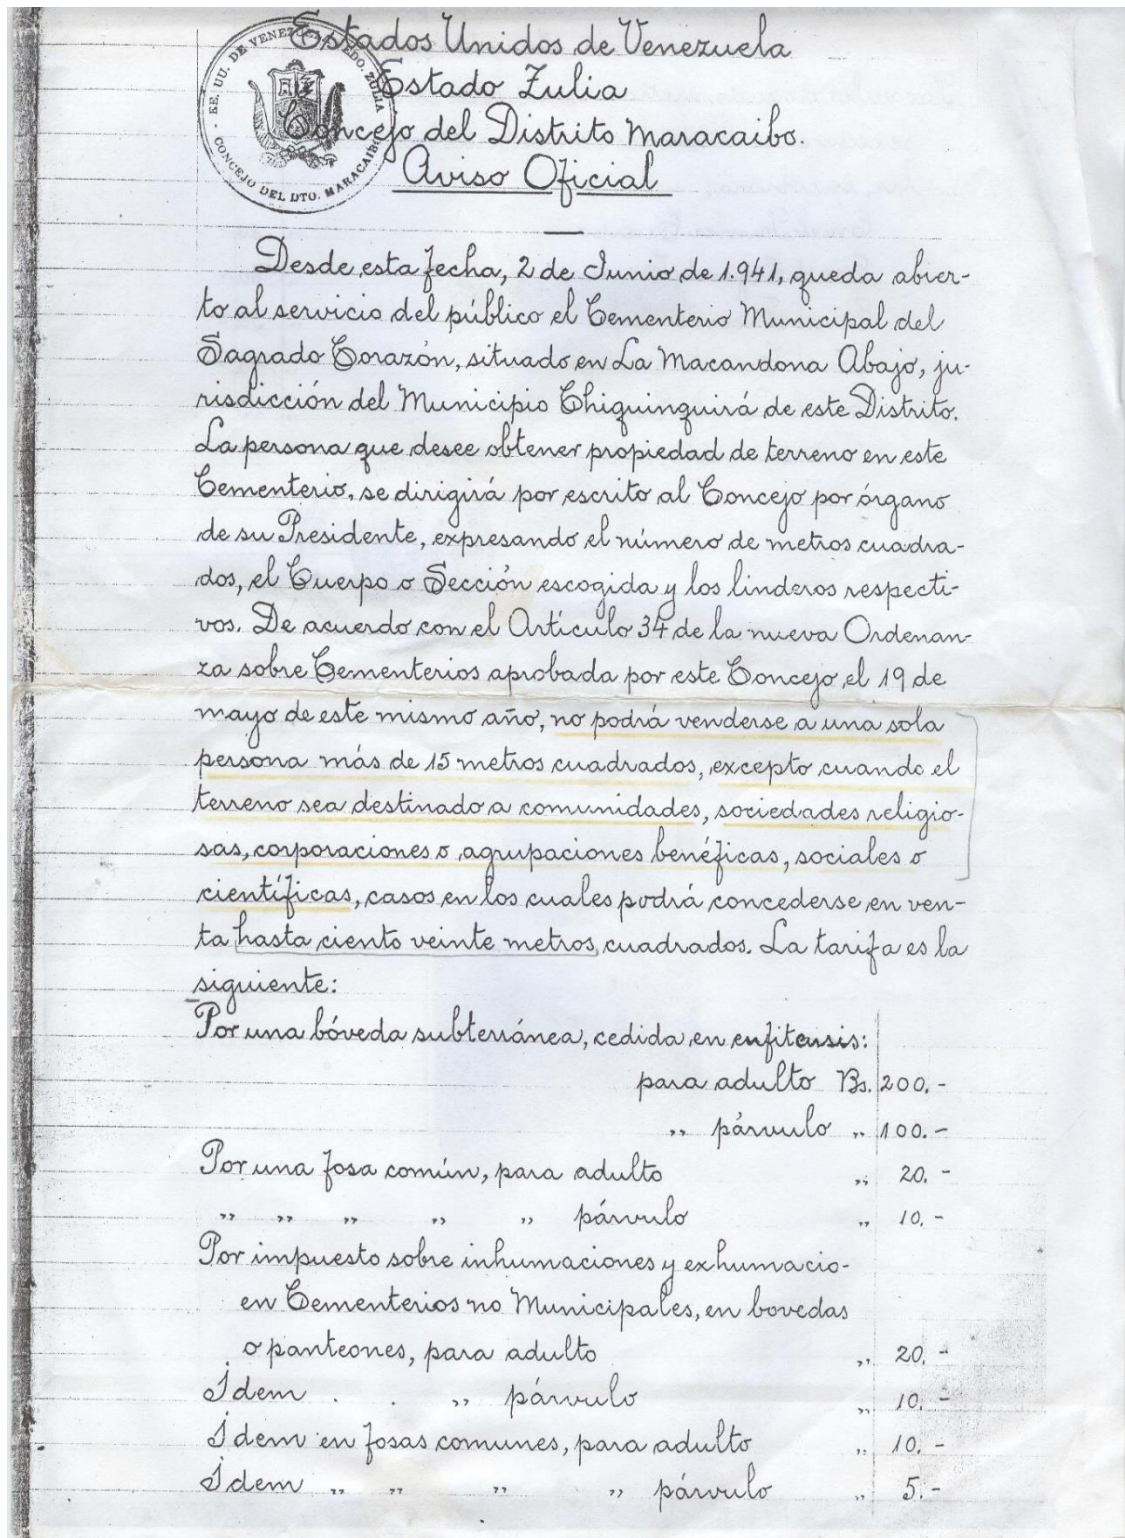 Estados Unidos de Venezuela
Estado Zulia
Concejo del Distrito Maracaibo.
Aviso Oficial
EE. UU. DE VENEZUELA EDO. ZULIA
CONCEJO DEL DTO. MARACAIBO
Desde esta fecha, 2 de Junio de 1.941, queda abier-
to al servicio del público el Cementerio Municipal del
Sagrado Corazón, situado en La Macandona Abajo, ju-
risdicción del Municipio Chiquinquirá de este Distrito.
La persona que desee obtener propiedad de terreno en este
Cementerio, se dirigirá por escrito al Concejo por órgano
de su Presidente, expresando el número de metros cuadra-
dos, el Cuerpo o Sección escogida y los linderos respecti-
vos. De acuerdo con el Artículo 34 de la nueva Ordenan-
za sobre Cementerios aprobada por este Concejo el 19 de
mayo de este mismo año, no podrá venderse a una sola
persona más de 15 metros cuadrados, excepto cuando el
terreno sea destinado a comunidades, sociedades religio-
sas, corporaciones o agrupaciones benéficas, sociales o
científicas, casos en los cuales podrá concederse en ven-
ta hasta ciento veinte metros cuadrados. La tarifa es la
siguiente:
Por una bóveda subterránea, cedida en enfiteusis:
para adulto Bs. 200.-
„ párvulo „ 100.-
Por una fosa común, para adulto „ 20.-
„ „ „ „ „ párvulo „ 10.-
Por impuesto sobre inhumaciones y exhumacio-
en Cementerios no Municipales, en bovedas
o panteones, para adulto „ 20.-
Ídem . . „ párvulo „ 10.-
Ídem en fosas comunes, para adulto „ 10.-
Ídem „ „ „ „ párvulo „ 5.-